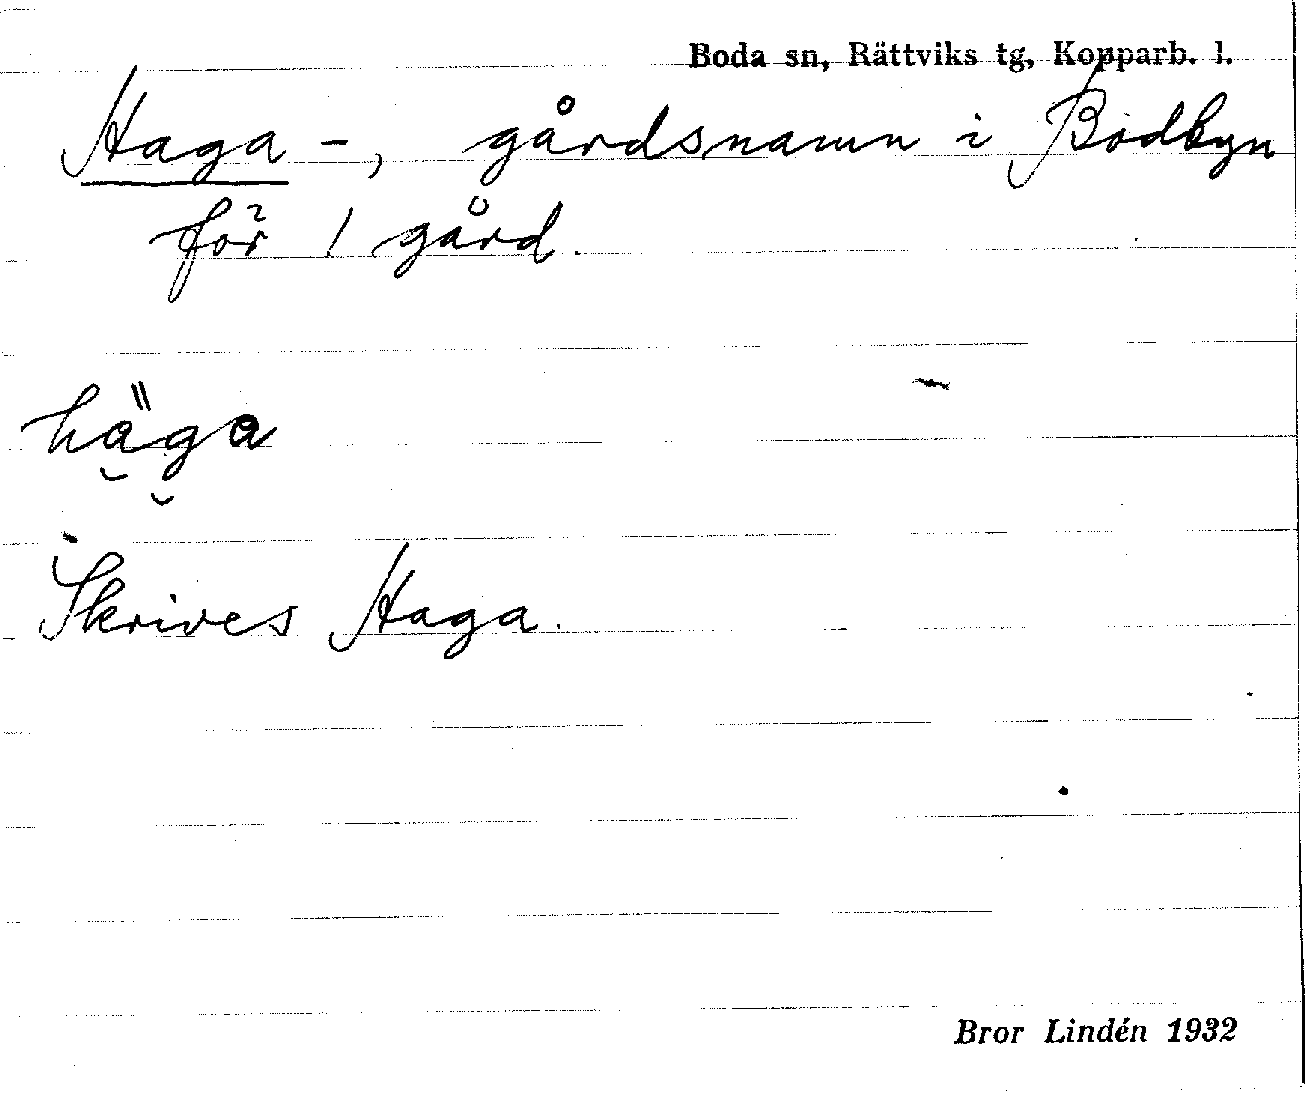 Boda sn, Rättviks tg, Kopparb. l.
Haga -, gårdsnamn i Bodbyn
för 1 gård.
häga
Skrives Haga.
Bror Lindén 1932